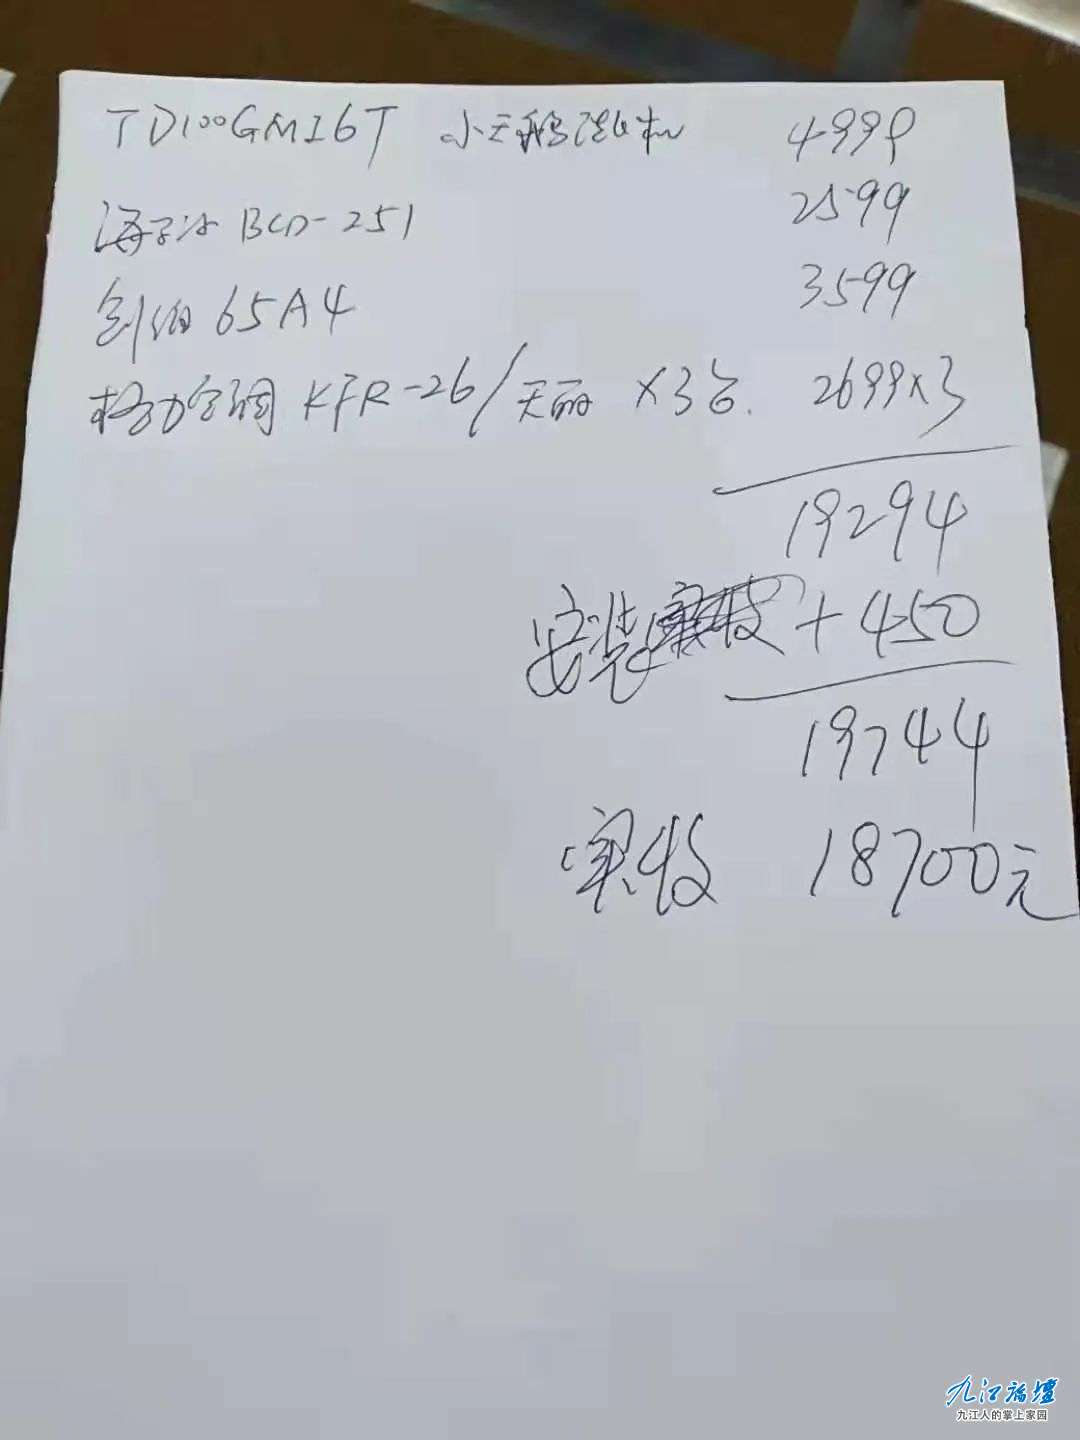 TD100GM16T 小天鹅洗衣机 4999
海尔冰 BCD-251 2599
创维 65A4 3599
格力空调 KFR-26/天丽 ×3台. 2699×3
19294
安装 +450
19744
实收 18700元
九江论坛
九江人的掌上家园